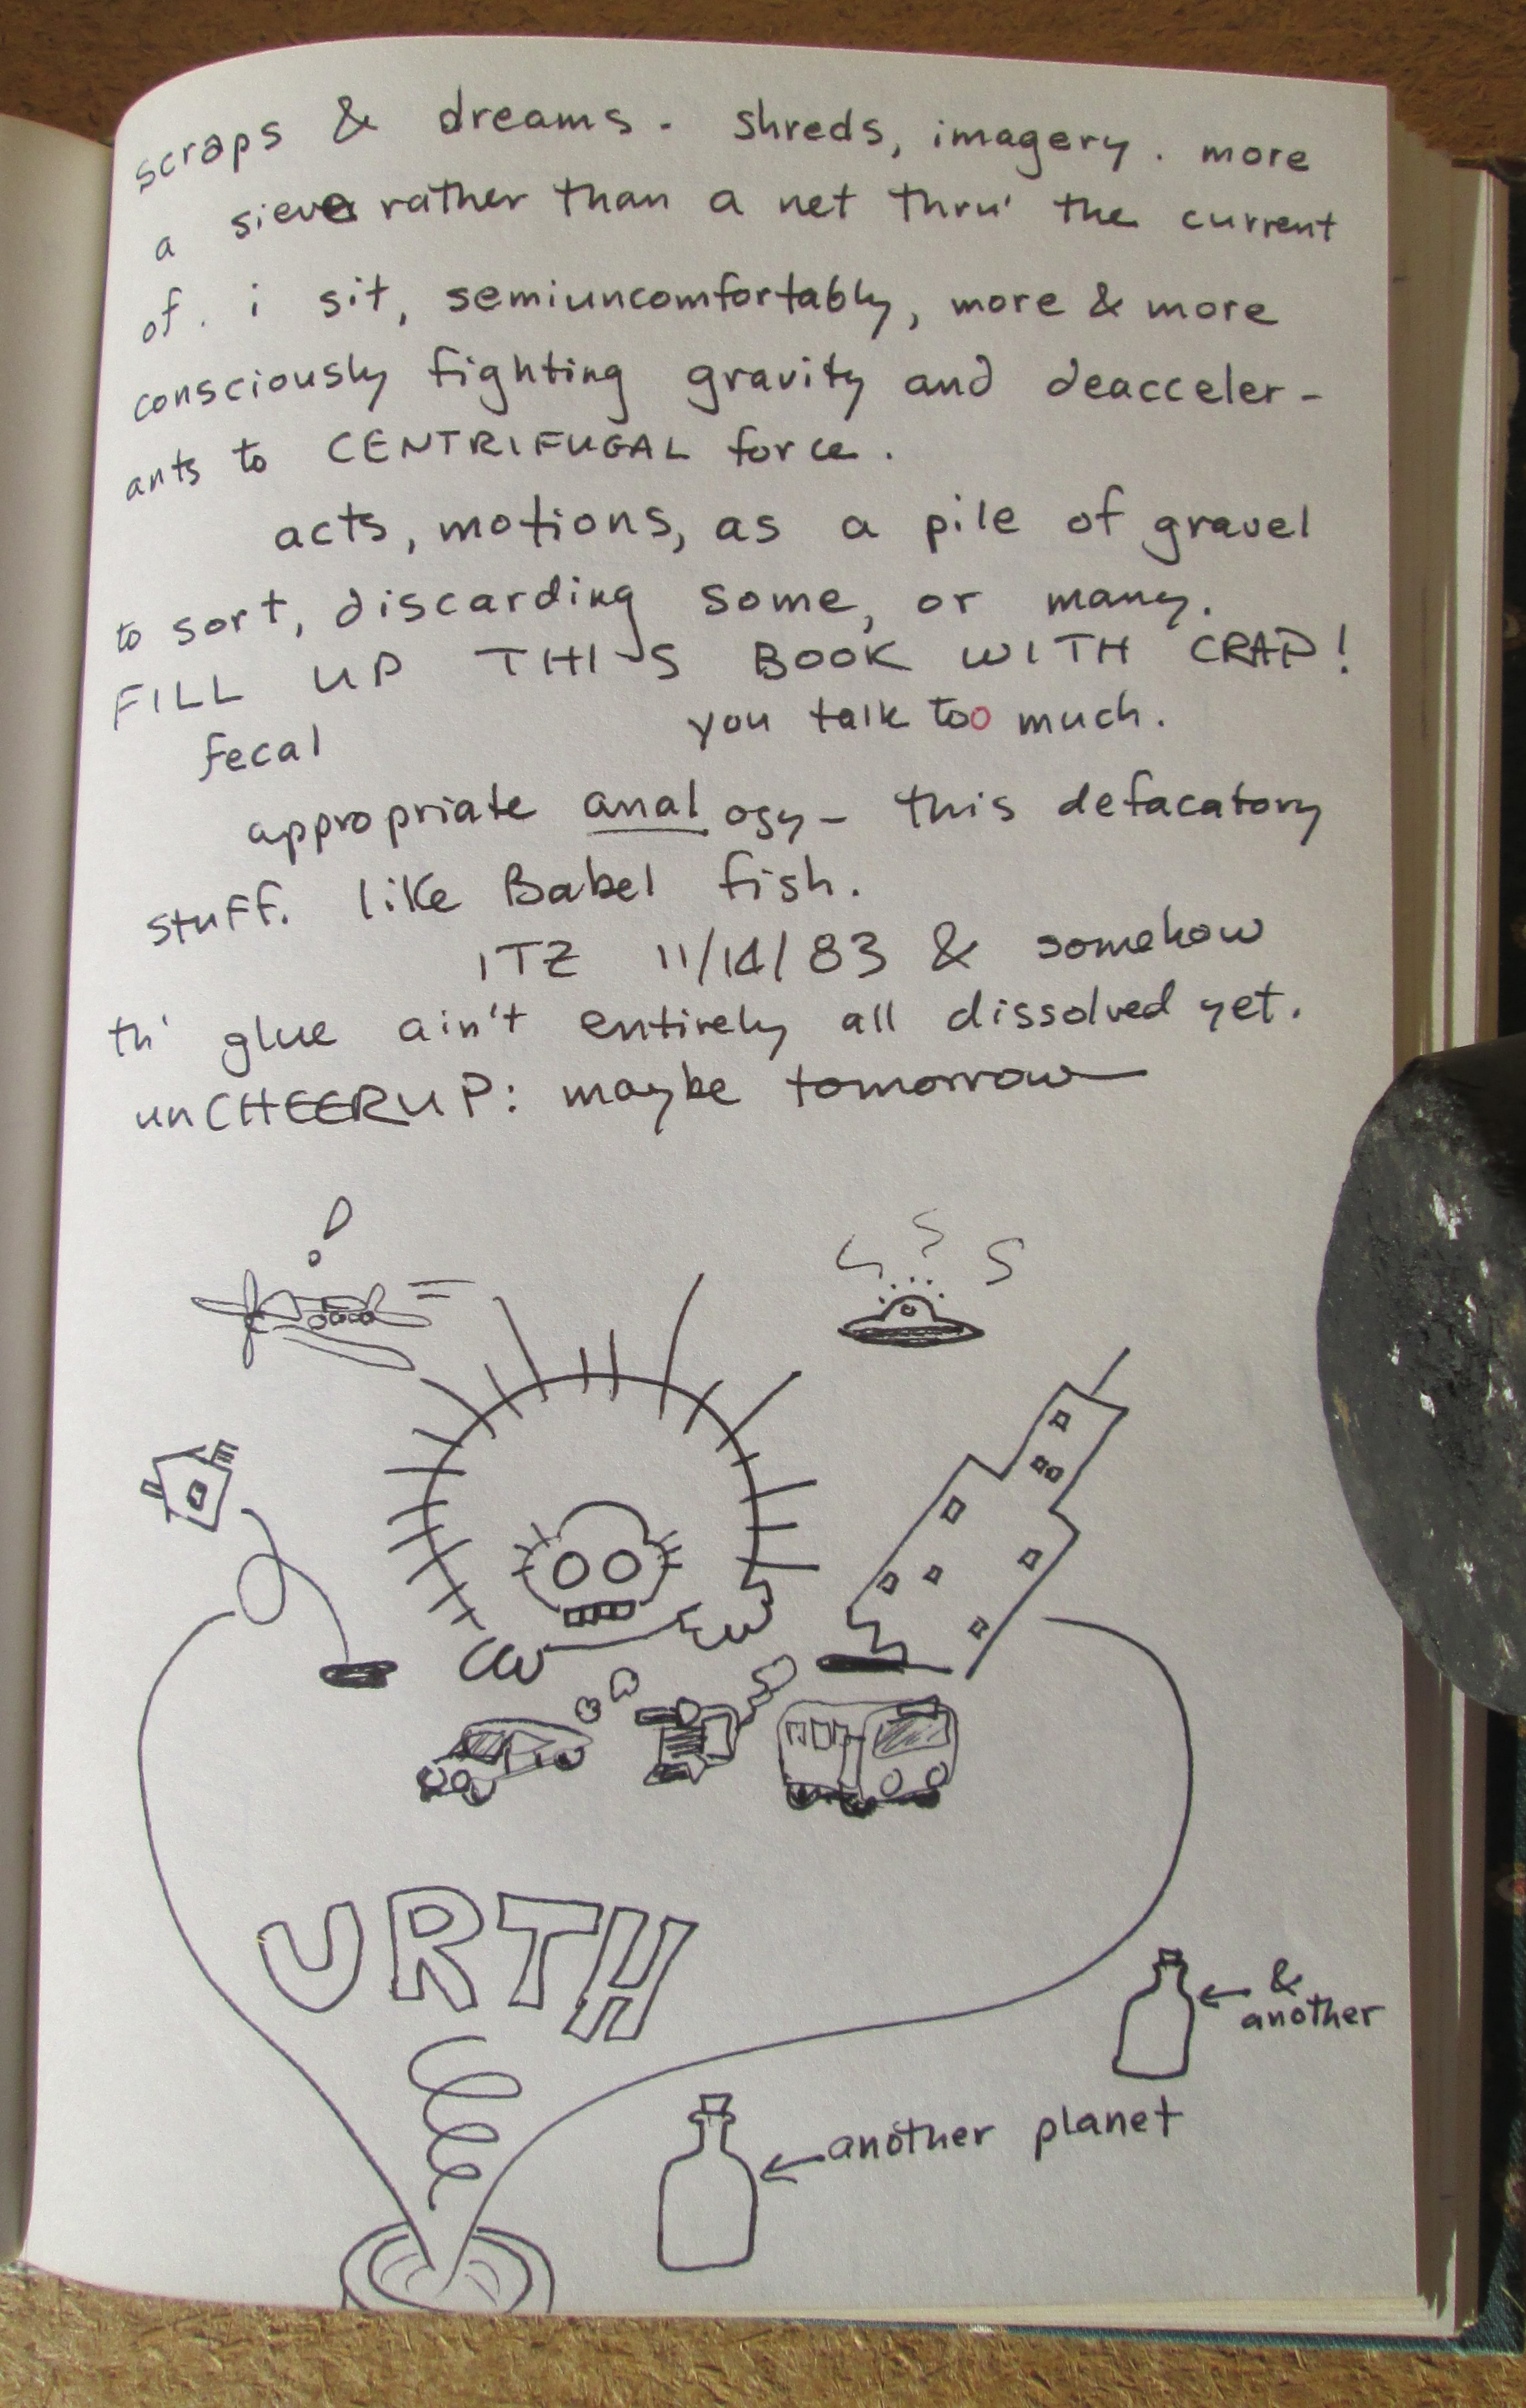 scraps & dreams. shreds, imagery. more
a sieve rather than a net thru' the current
of. i sit, semiuncomfortably, more & more
consciously fighting gravity and deacceler-
ants to CENTRIFUGAL force.
acts, motions, as a pile of gravel
to sort, discarding some, or many.
FILL UP THIS BOOK WITH CRAP!
fecal you talk too much.
appropriate analogy - this defacatory
stuff. like Babel fish.
ITZ 11/14/83 & somehow
th' glue ain't entirely all dissolved yet.
unCHEERUP: maybe tomorrow
URTH
& 
another
another planet